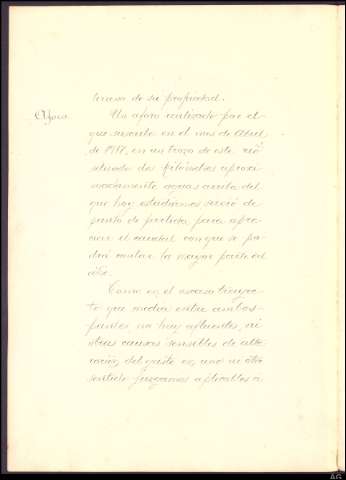 terreno de su propiedad.
Aforo. Un aforo realizado por el
que suscribe en el mes de Abril
de 19 en un trozo de este rió
situado dos kilómetros aproxi
madamente aguas arriba del
que hoy estudiamos sirvió de
punto de partida para apre
ciar el caudal con que se po
drá contar la mayor parte del
año.
Como en el escaso trayec
to que media entre ambos
puntos no hay afluentes, ni
otras causas sensibles de alte
ración del gasto en uno ni otro
sentido juzgamos aplicables a
AG